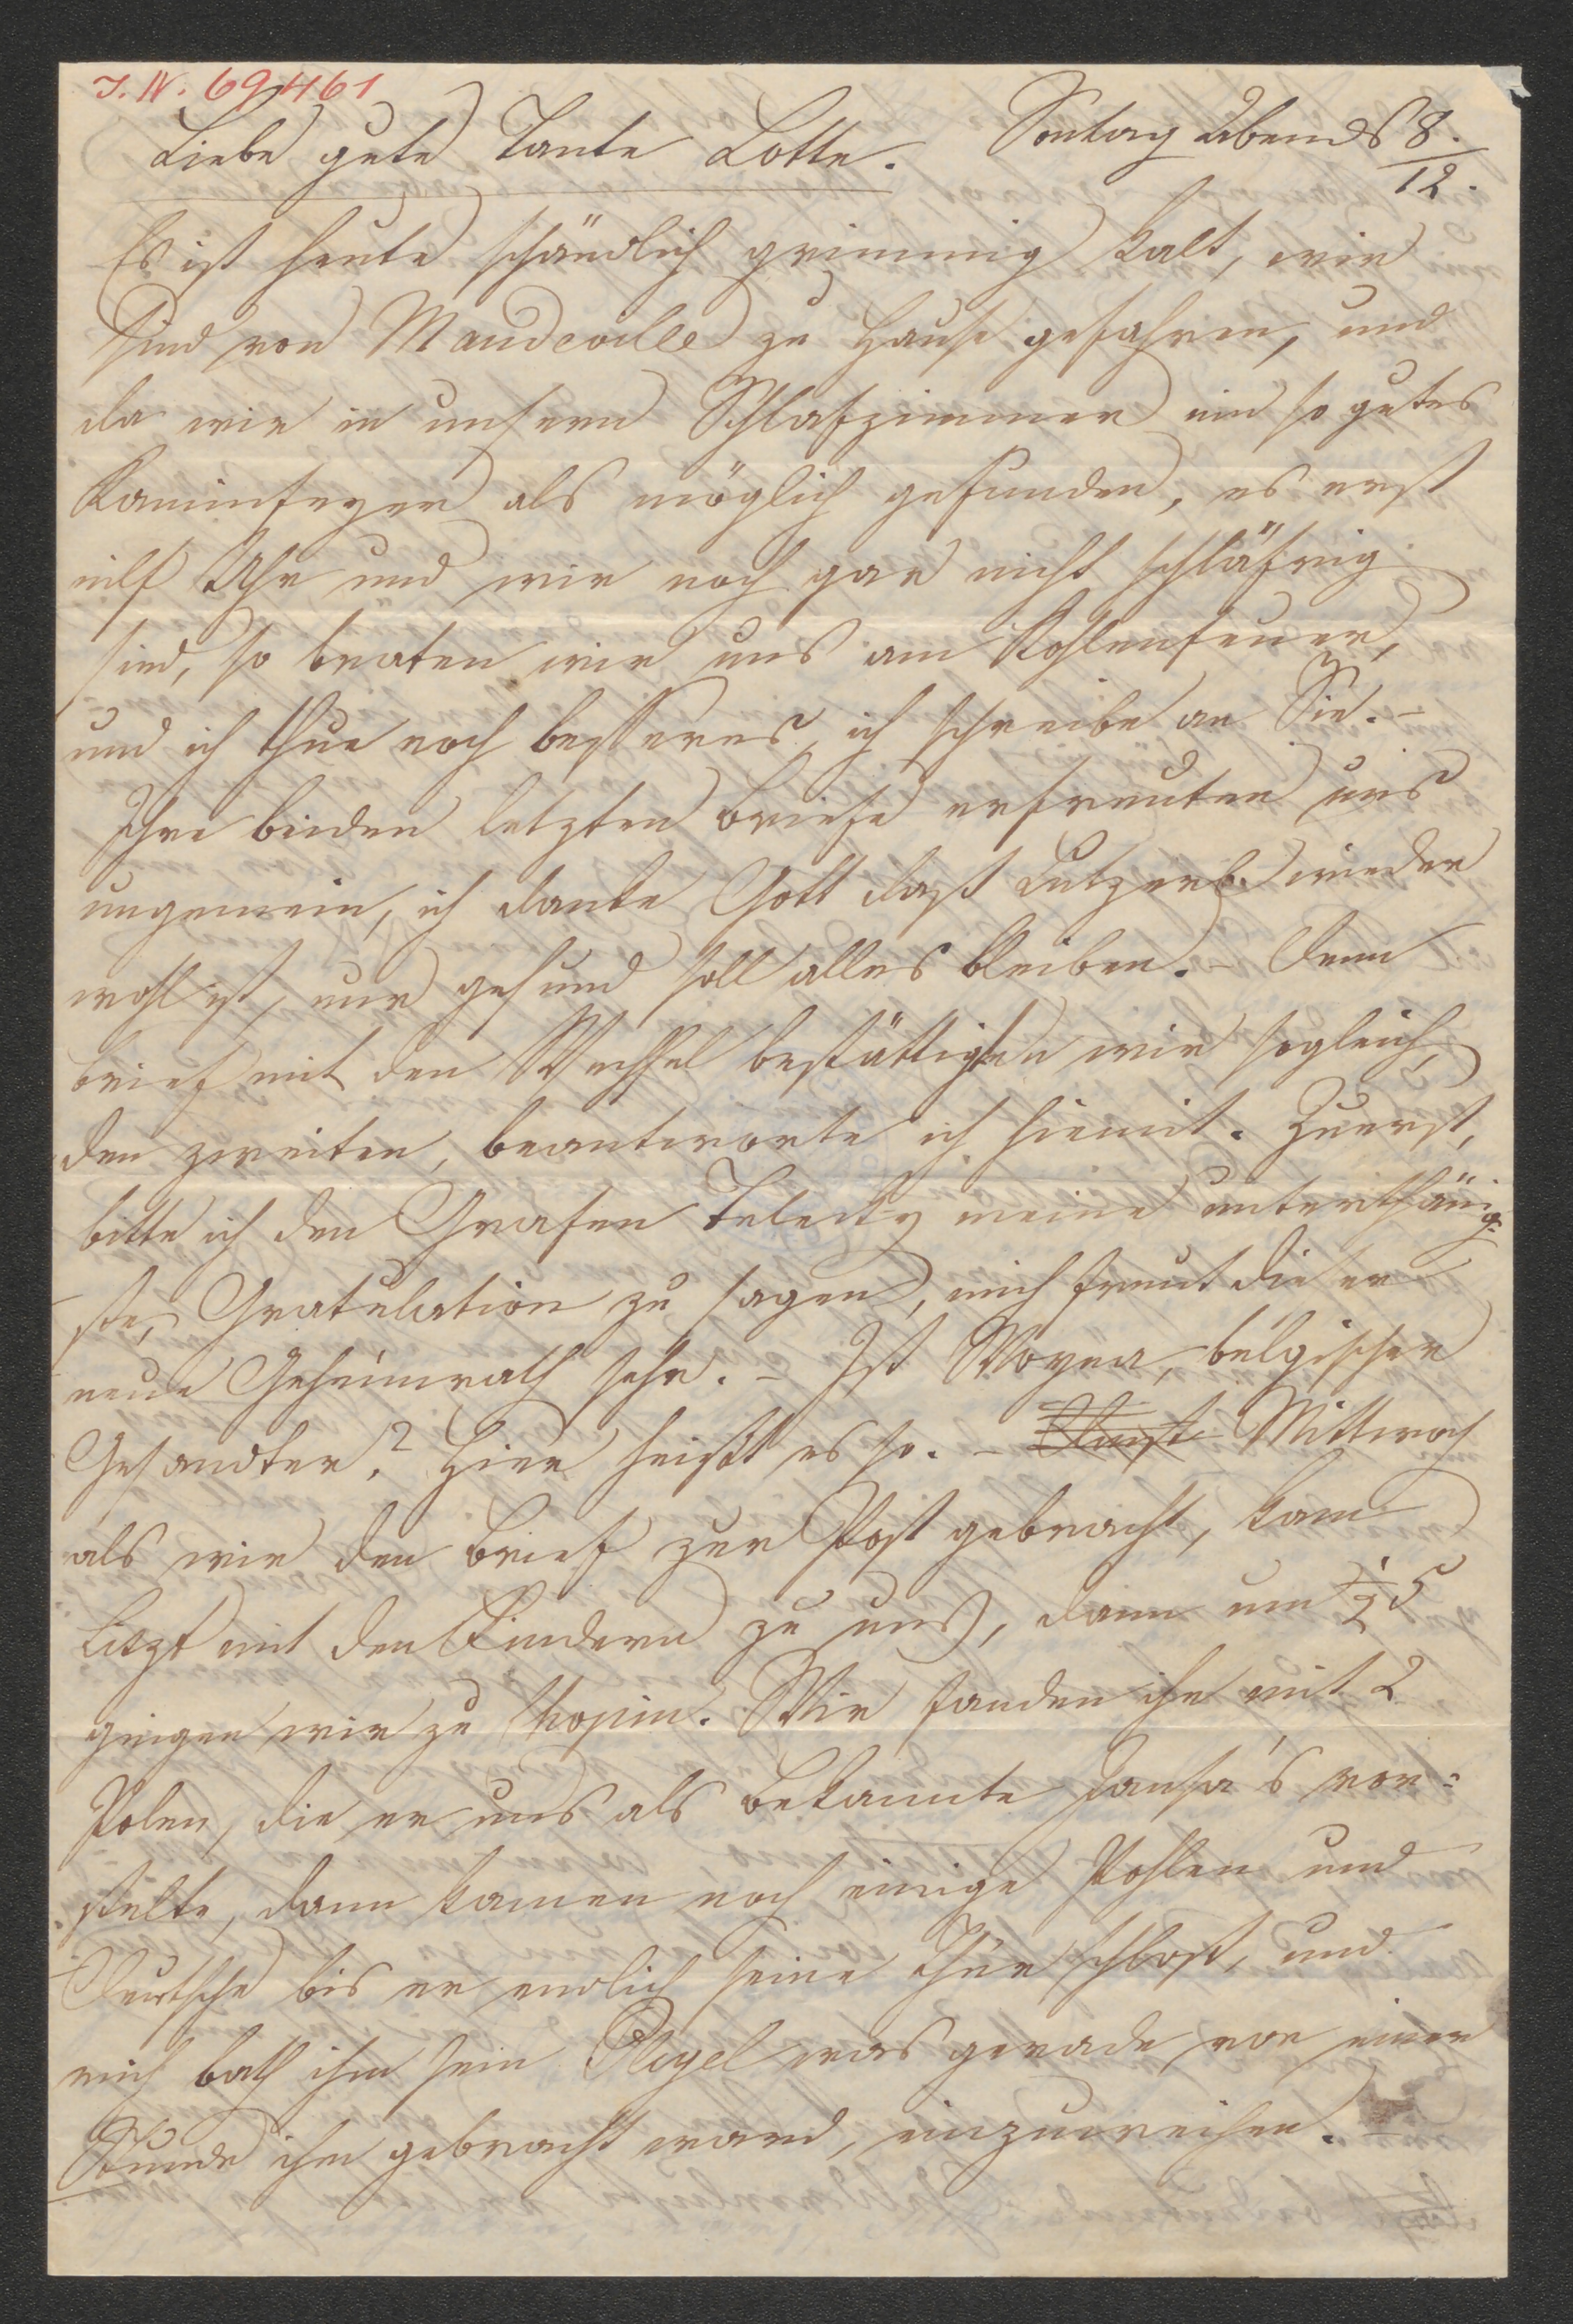 I. N. 69461
Liebe gute Tante Lotte. Sontag Abends 8.
12.
Es ist heute schändlich grimmig kalt, wir
sind von Maudeville zu Hause gefahren, und
da wir in unserm Schlafzimmer ein so gutes
Kaminfeyer als möglich gefunden, es erst
eilf Uhr und wir noch gar nicht schläfrig
sind, so braten wir uns am Kohlenfeuer,
und ich thue noch besseres, ich schreibe an Sie. –
Ihre beiden letzten Briefe erfreuten uns
ungemein, ich danke Gott daß wieder
wohl ist, nur gesund soll alles bleiben. – Denn
Brief mit den Wechsel bestättigten wir sogleich,
den zweiten, beantworte ich hiemit. Zuerst,
bitte ich den Grafen meine unterthänig-
ste, Gratulation zu sagen, mich freut die er
neue Geheimrath sehr. – Ist Woyna, belgischer
Gesandter? Hier heißt es so. – Mittwoch
als wir den Brief zur Post gebracht, kam
Liszt mit den Kindern zu uns, dann um ½ 5
gingen wir zu Chopin. Wir fanden ihn mit 2
Polen, die er uns als Bekannte Jansa's vor=
stelte, dann kamen noch einige Pohlen und
Deutsche bis er endlich seine Thür schloß, und
mich bath ihm sein Pleyel was gerade vor einer
Stunde ihm gebracht ward, einzuweihen. –